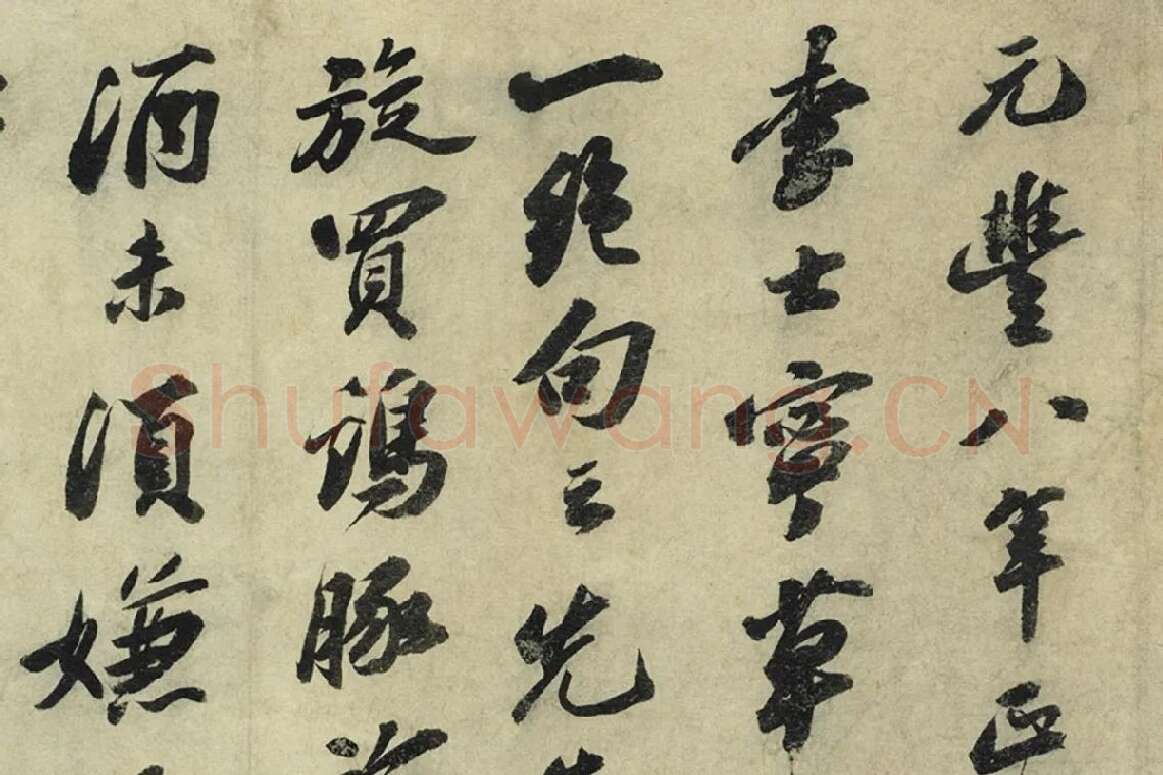 元豐八年正
李士寧草
一絕句云先
旋買鷄豚
酒未須嫌
Shufawang.CN